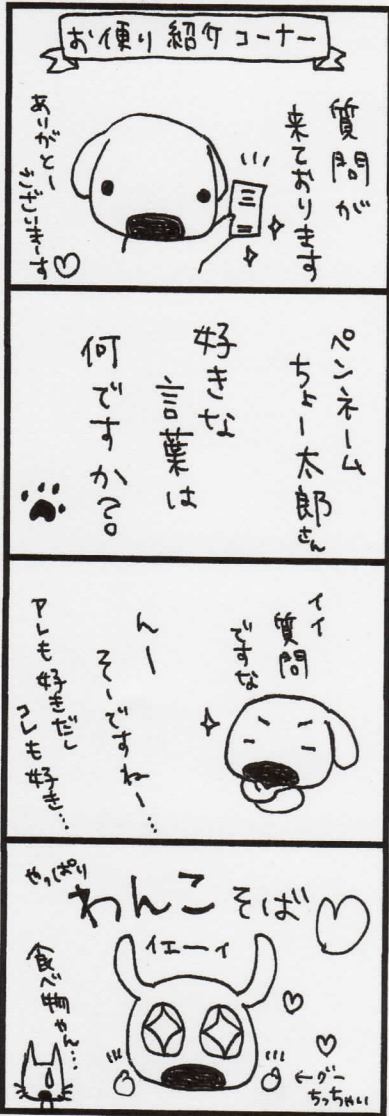 お便り紹介コーナー
質問が
来ております
ありがとー
ございまーす♡
ペンネーム
ちょー太郎さん
好きな
言葉は
何ですか?
イイ
質問
ですな
んー
そーですねー…
アレも好きだし
コレも好き…
やっぱり
わんこそば
イエーイ
食べ物やん…
←グー
ちっちゃい